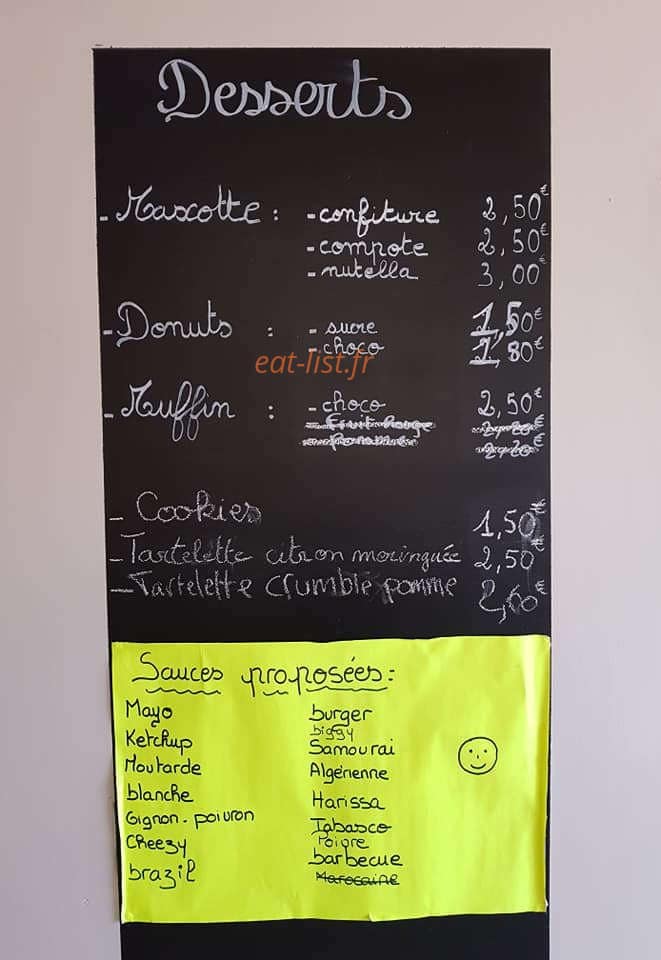 Desserts
- Mascotte : - confiture 2,50€
- compote 2,50€
- nutella 3,00€
- Donuts : - sucre 1,50€
- choco 1,80€
eat-list.fr
- Muffin : - choco 2,50€
Fruit Rouge 2,20€
2,20€
- Cookies 1,50€
- Tartelette citron meringuée 2,50€
- Tartelette crumble pomme 2,60€
Sauces proposées :
Mayo
Ketchup
Moutarde
blanche
Gignon - poivron
Cheezy
brazil
burger
biggy
Samourai
Algérienne
Harissa
Tabasco
Poivre
barbecue
Marocaine